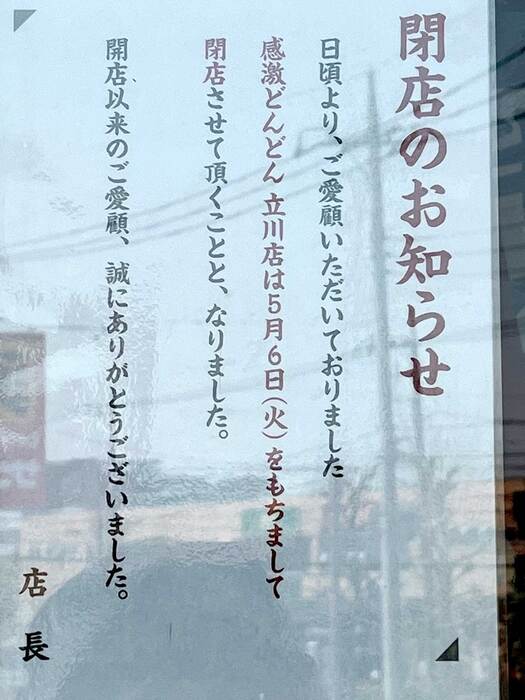 閉店のお知らせ
日頃より、ご愛顧いただいておりました
感激どんどん 立川店は5月6日(火)をもちまして
閉店させて頂くことと、なりました。
開店以来のご愛顧、誠にありがとうございました。
店 長